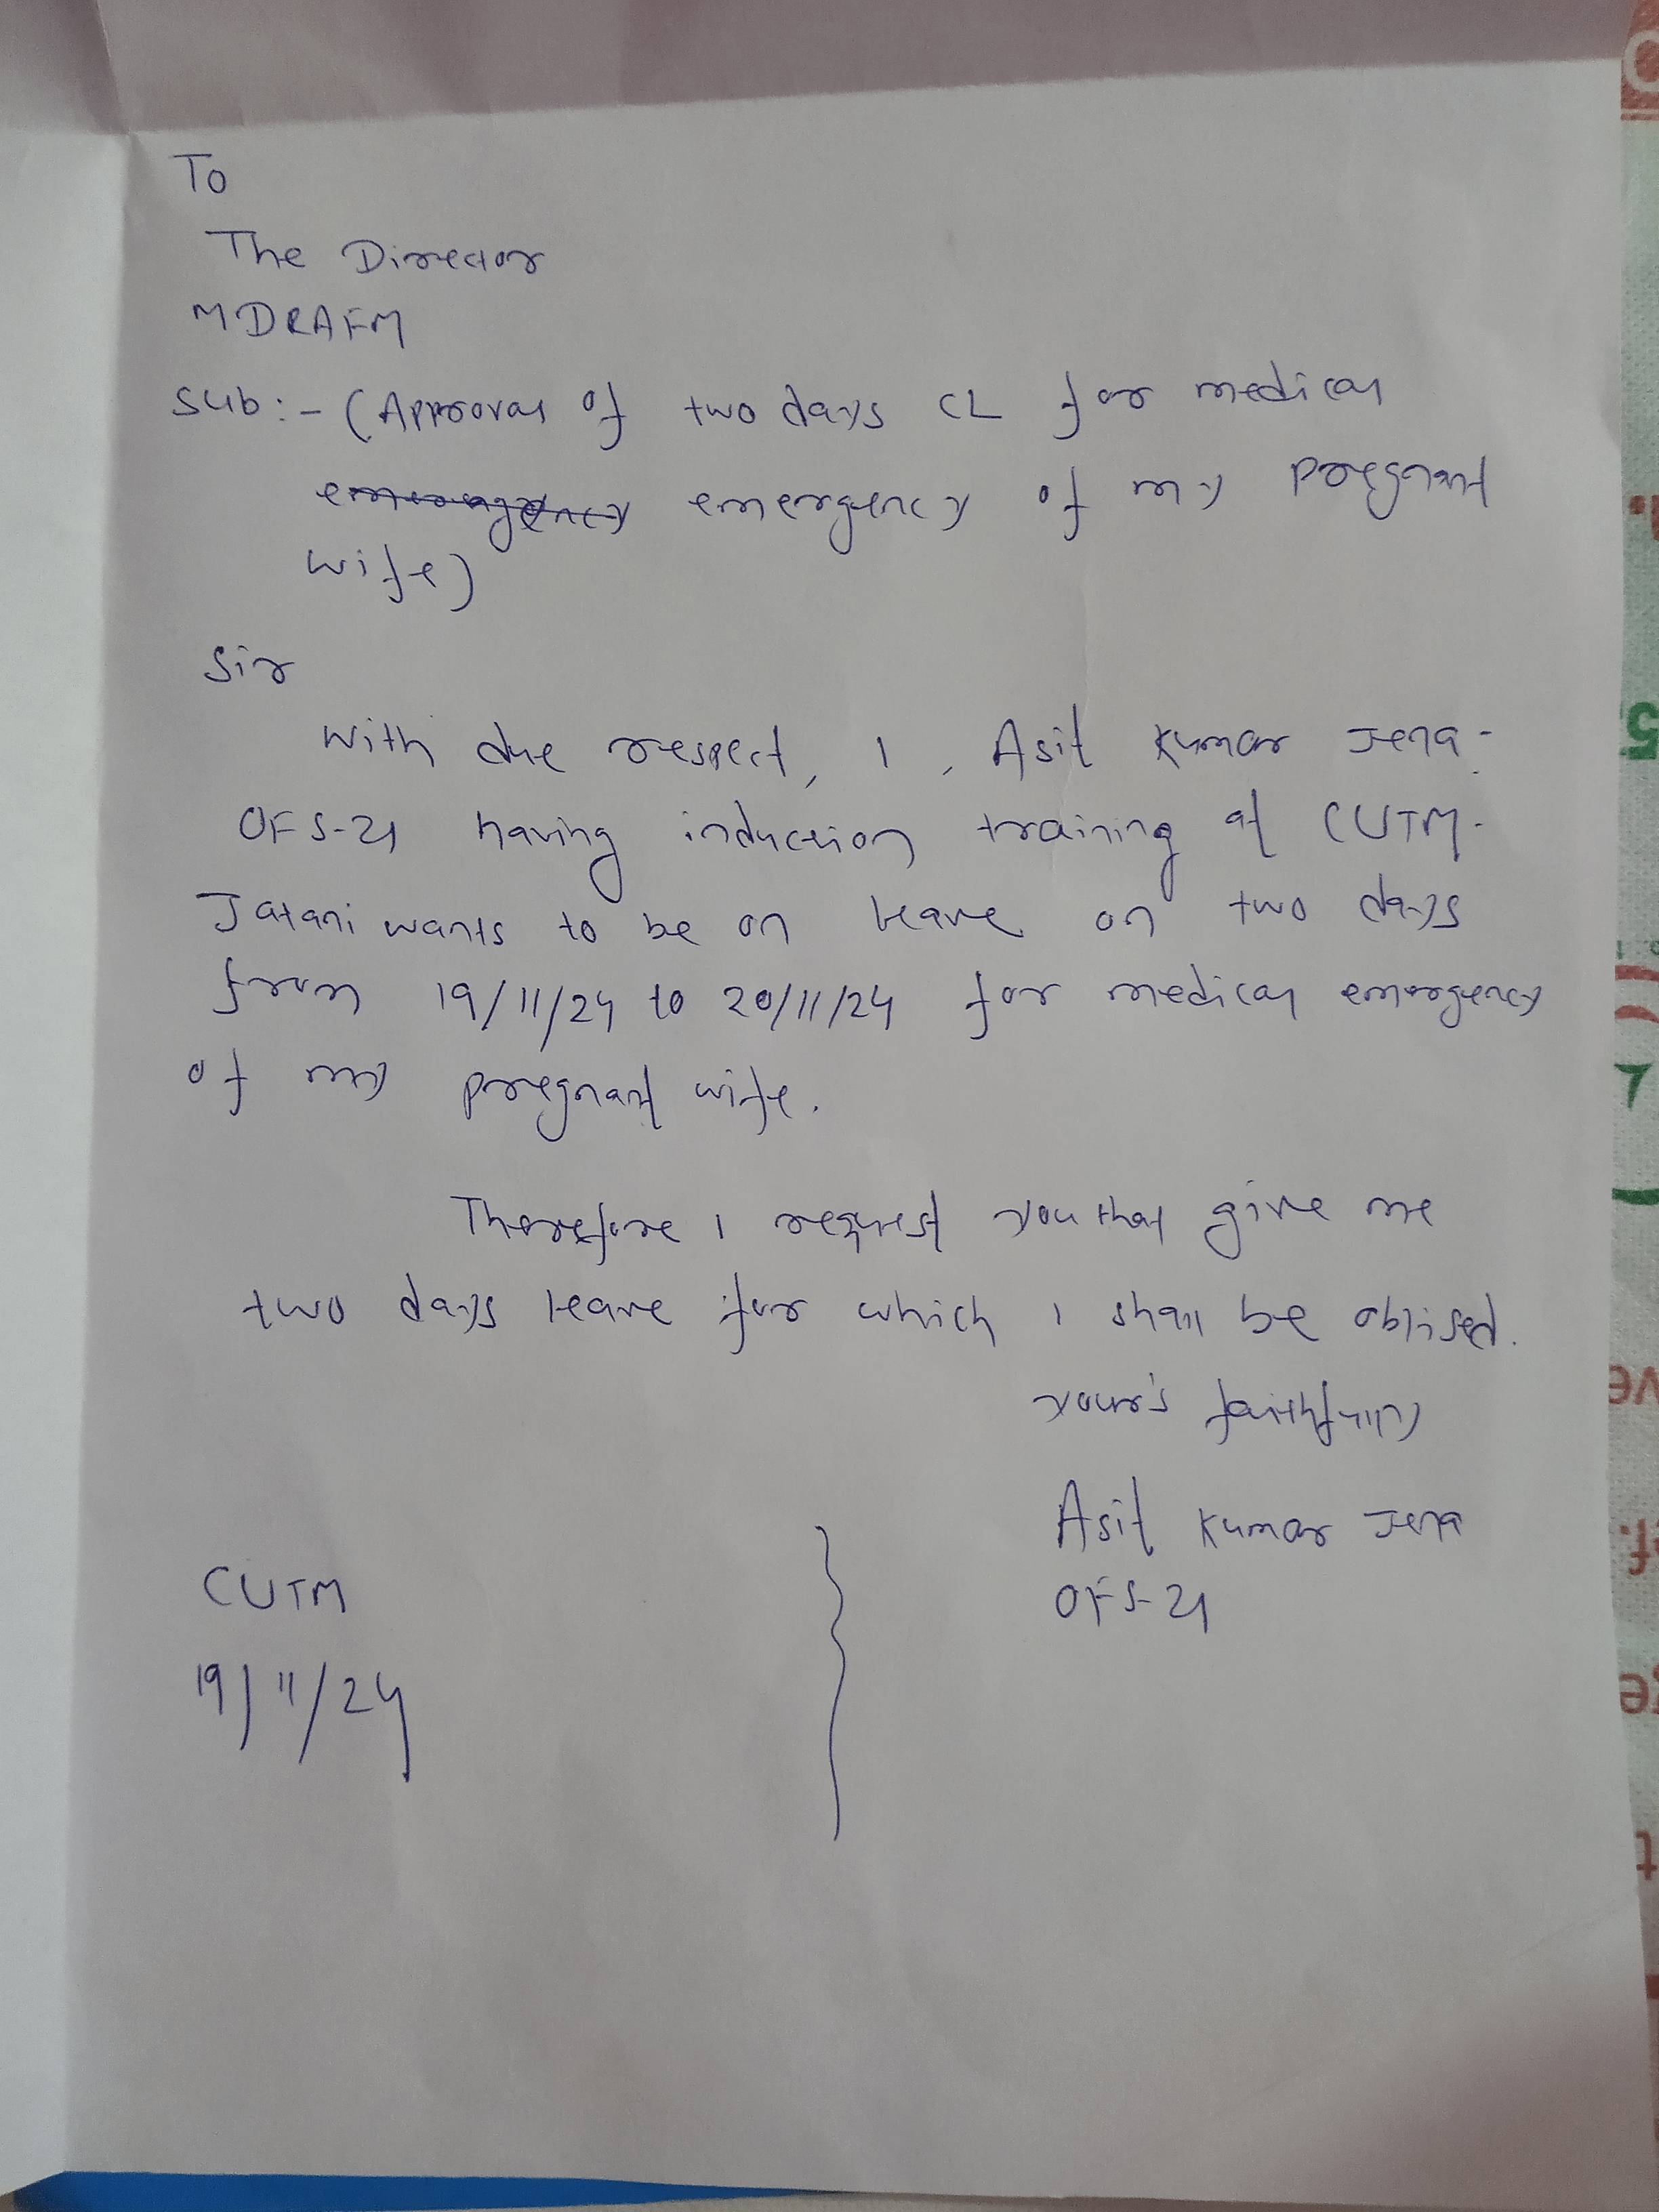 To
The Director
MDRAFM
Sub:- (Approval of two days CL for medical
emergency emergency of my pregnant
wife)
Sir
With due respect, I, Asit Kumar Jena-
OFS-21 having induction training at CUTM-
Jatani wants to be on leave on two days
from 19/11/24 to 20/11/24 for medical emergency
of my pregnant wife.
Therefore I request you that give me
two days leave for which I shall be obliged.
your's faithfully
Asit Kumar Jena
OFS-21
CUTM
19/11/24